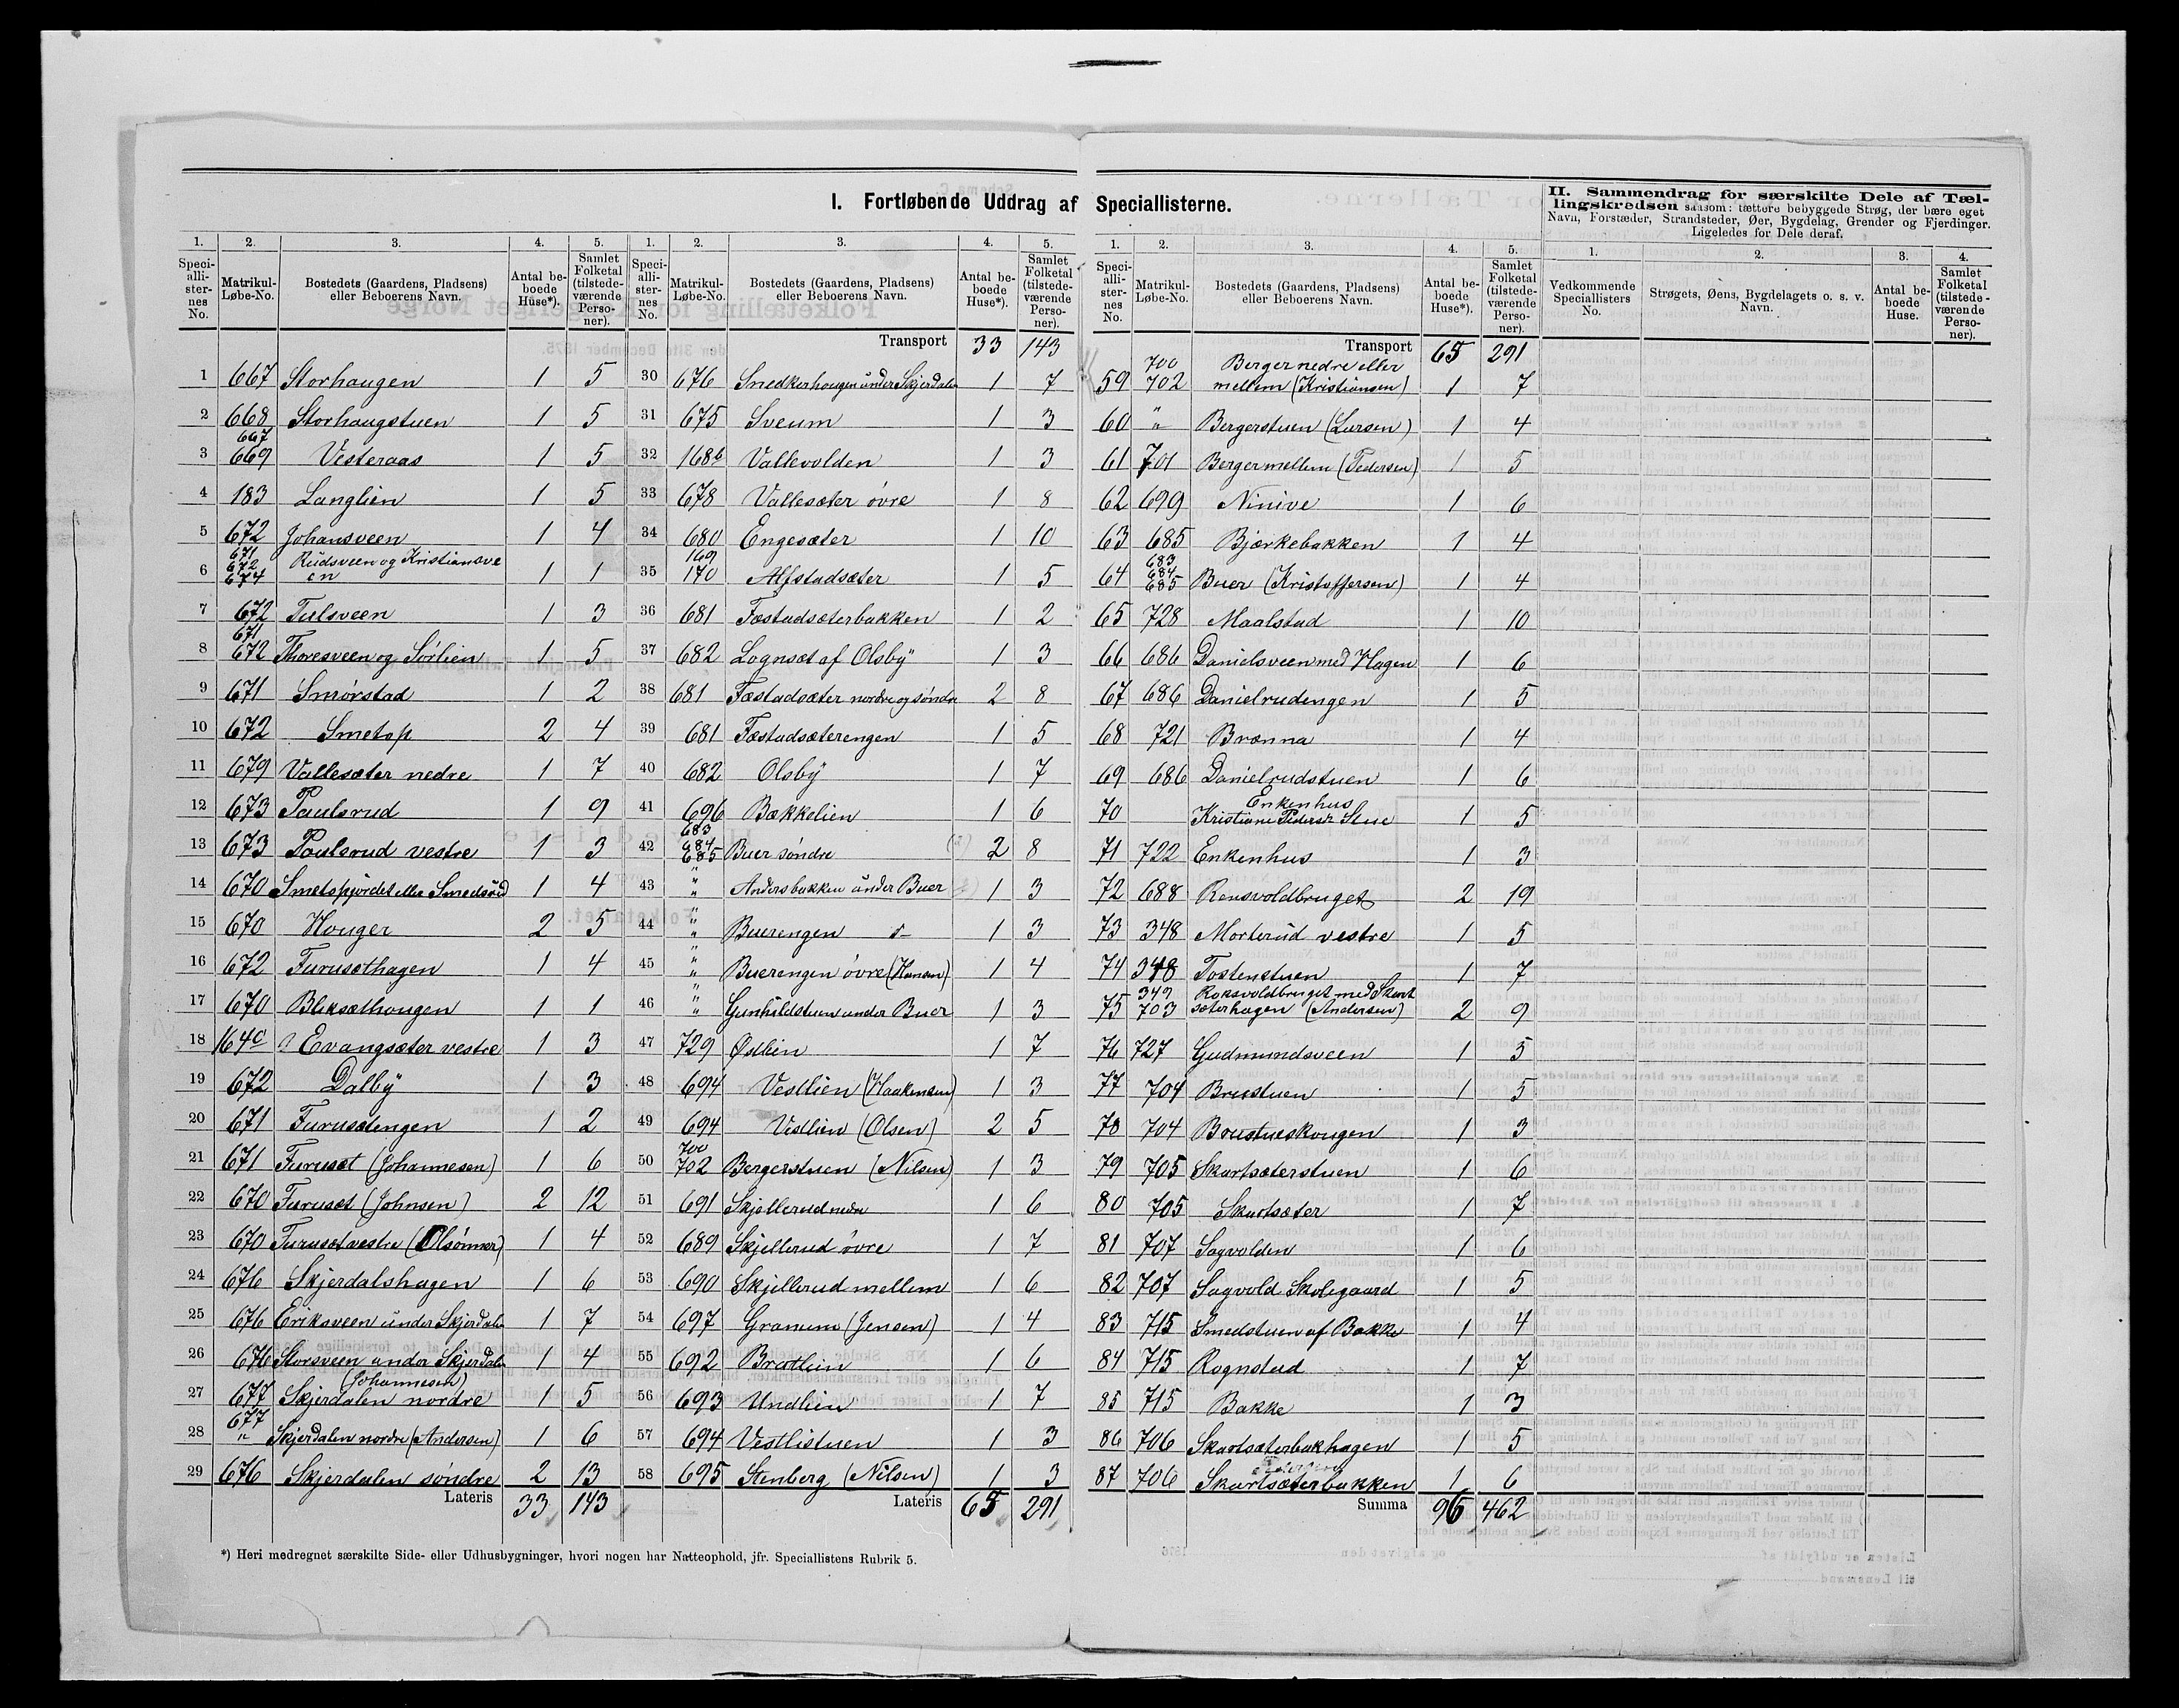 I. Fortløbende Uddrag af Speciallisterne.
II. Sammendrag for særskilte Dele af Tæl-
lingskredsen saasom: tættere bebyggede Strøg, der bære eget
Navn, Forstæder, Strandsteder, Øer, Bygdelag, Grender og Fjerdinger.
Ligeledes for Dele deraf.
1. 2. 3. 4. 5.
Speciallisternes No. Matrikul-Løbe-No. Bostedets (Gaardens, Pladsens) eller Beboerens Navn. Antal beboede Huse*). Samlet Folketal (tilstedeværende Personer).
1 667 Storhaugen 1 5
2 668 Storhaugstuen 1 5
3 667 669 Vesteraas 1 5
4 183 Langlien 1 5
5 672 Johansveen 1 4
6 671 672 674 Rudsveen og Kristiansveen 1 1
7 672 Tulsveen 1 3
8 671 672 Thoresveen og Sørlien 1 5
9 671 Smørstad 1 2
10 672 Smetop 2 4
11 679 Vallesæter nedre 1 7
12 673 Paulsrud 1 9
13 673 Poulsrud vestre 1 3
14 670 Smetopjordet eller Smedsrud 1 4
15 670 Houger 2 5
16 672 Furusethagen 1 4
17 670 Bleksethougen 1 1
18 164c Evangsæter vestre 1 3
19 672 Dalby 1 3
20 671 Furusetengen 1 2
21 671 Furuset (Johannesen) 1 6
22 670 Furuset (Johnsen) 2 12
23 670 Furuset vestre (Olsønner) 1 4
24 676 Skjerdalshagen 1 6
25 676 Eriksveen under Skjerdalen 1 7
26 676 Storsveen under Skjerdalen 1 4
27 677 Skjerdalen nordre (Johannesen) 1 5
28 677 " Skjerdalen nordre (Andersen) 1 6
29 676 Skjerdalen søndre 2 13
Lateris 33 143
1. 2. 3. 4. 5.
Speciallisternes No. Matrikul-Løbe-No. Bostedets (Gaardens, Pladsens) eller Beboerens Navn. Antal beboede Huse*). Samlet Folketal (tilstedeværende Personer).
Transport 33 143
30 676 Snedkerhougen under Skjerdalen 1 7
31 675 Sveum 1 3
32 168b Vallevolden 1 3
33 678 Vallesæter øvre 1 8
34 680 Engesæter 1 10
35 169 170 Alfstadsæter 1 5
36 681 Fæstadsæterbakken 1 2
37 682 Lognset af Olsby 1 3
38 681 Fæstadsæter nordre og søndre 2 8
39 681 Fæstadsæterengen 1 5
40 682 Olsby 1 7
41 696 Bækkelien 1 6
42 683 684 685 Buer søndre (2) 2 8
43 " " Andersbakken under Buer 1 3
44 " " Buerengen 1 3
45 " " Buerengen øvre (Hansen) 1 4
46 " " Gunhildstuen under Buer 1 3
47 729 Østlien 1 7
48 694 Vestlien (Haakensen) 1 3
49 694 Vestlien (Olsen) 2 5
50 700 702 Bergerstuen (Nilsen) 1 3
51 691 Skjellerud nedre 1 6
52 689 Skjellerud øvre 1 7
53 690 Skjellerud mellem 1 6
54 697 Granum (Jensen) 1 4
55 692 Bratlien 1 6
56 693 Undlien 1 7
57 694 Vestlistuen 1 3
58 695 Stenberg (Nilsen) 1 3
Lateris 65 291
*) Heri medregnet særskilte Side- eller Udhusbygninger, hvori nogen har Natteophold, jfr. Speciallistens Rubrik 5.
1. 2. 3. 4. 5.
Speciallisternes No. Matrikul-Løbe-No. Bostedets (Gaardens, Pladsens) eller Beboerens Navn. Antal beboede Huse*). Samlet Folketal (tilstedeværende Personer).
Transport 65 291
59 700 702 Berger nedre eller mellem (Kristiansen) 1 7
60 " Bergerstuen (Larsen) 1 4
61 701 Berger mellem (Pedersen) 1 5
62 699 Ninive 1 6
63 685 Bjørkebakken 1 4
64 683 684 685 Buer (Kristoffersen) 1 4
65 728 Maalstad 1 10
66 686 Danielsveen med Hagen 1 6
67 686 Danielrudengen 1 5
68 721 Brænna 1 4
69 686 Danielrudstuen 1 6
70 Enkenhus Kristiane Pedersdr Stue 1 5
71 722 Enkenhus 1 3
72 688 Rensvoldbruget 2 19
73 348 Morterud vestre 1 5
74 348 Tostenstuen 1 7
75 349 703 Roksvoldbruget med Skartsæterhagen (Andersen) 2 9
76 727 Gudmundsveen 1 5
77 704 Brustuen 1 5
78 704 Brustueskougen 1 3
79 705 Skartsæterstuen 1 6
80 705 Skartsæter 1 7
81 707 Sagvolden 1 6
82 707 Sagvold Skolegaard 1 5
83 715 Smedstuen af Bakke 1 4
84 715 Rognstad 1 7
85 715 Bakke 1 3
86 706 Skartsæterbakhagen 1 5
87 706 Skartsæterbakken 1 6
Summa 96 462
1. 2. 3. 4.
Vedkommende Speciallisters No. Strøgets, Øens, Bygdelagets o. s. v. Navn. Antal beboede Huse. Samlet Folketal (tilstedeværende Personer).